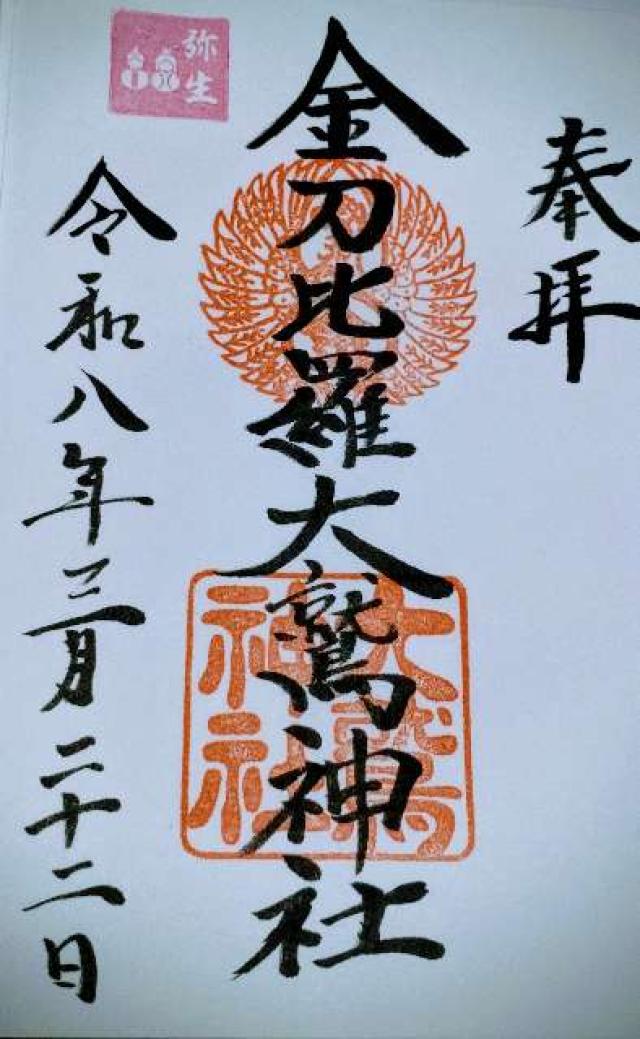 奉拝
金刀比羅大鷲神社
大鷲神社
令和八年三月二十二日
弥生